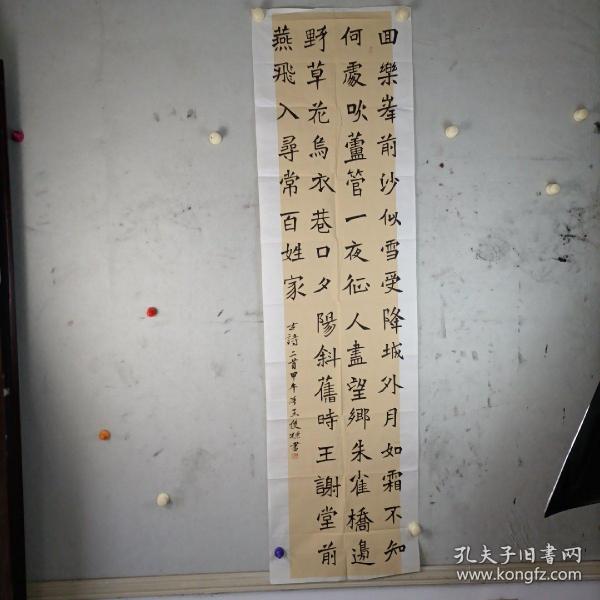 回樂峯前沙似雪受降城外月如霜不知
何處吹蘆管一夜征人盡望鄉朱雀橋邊
野草花烏衣巷口夕陽斜舊時王謝堂前
燕飛入尋常百姓家
古詩二首甲午年王俊
孔夫子旧書网
www.kongfz.com